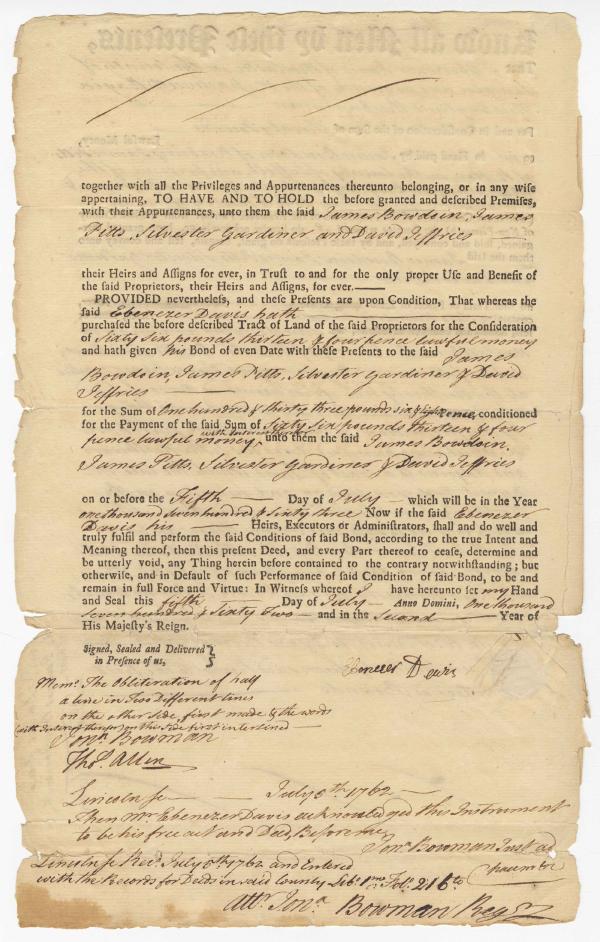 together with all the Privileges and Appurtenances thereunto belonging, or in any wise
appertaining, TO HAVE AND TO HOLD the before granted and described Premises,
with their Appurtenances, unto them the said James Bowdoin, James
Pitts, Silvester Gardiner and David Jeffries
their Heirs and Assigns for ever, in Trust to and for the only proper Use and Benefit of
the said Proprietors, their Heirs and Assigns, for ever.—
PROVIDED nevertheless, and these Presents are upon Condition, That whereas the
said Ebenezer Davis hath
purchased the before described Tract of Land of the said Proprietors for the Consideration
of Sixty Six pounds thirteen & four pence lawful money
and hath given his Bond of even Date with these Presents to the said James
Bowdoin, James Pitts, Silvester Gardiner & David
Jeffries
for the Sum of One hundred & thirty three pounds six & Eight Pence, conditioned
for the Payment of the said Sum of Sixty Six pounds thirteen & four
pence lawful money with Interest unto them the said James Bowdoin,
James Pitts, Silvester Gardiner & David Jeffries
on or before the Fifth Day of July which will be in the Year
one thousand seven hundred & Sixty three Now if the said Ebenezer
Davis his Heirs, Executors or Administrators, shall and do well and
truly fulfil and perform the said Conditions of said Bond, according to the true Intent and
Meaning thereof, then this present Deed, and every Part thereof to cease, determine and
be utterly void, any Thing herein before contained to the contrary notwithstanding; but
otherwise, and in Default of such Performance of said Condition of said Bond, to be and
remain in full Force and Virtue: In Witness whereof I have hereunto set my Hand
and Seal this fifth Day of July Anno Domini, One thousand
Seven hundred & Sixty Two and in the Second Year of
His Majesty's Reign.
Signed, Sealed and Delivered
in Presence of us,
Ebenezer Davis
Memo. The Obliteration of half
a line in Two Different lines
on the other Side, first made & the words
(with Interest thereon) on this Side first interlined
Jona Bowman
Thos. Allen
Lincoln ss July 5th 1762
Then Mr Ebenezer Davis acknowledged this Instrument
to be his free act and Deed, Before me
Jona Bowman Just
Lincoln ss Recd. July 5th 1762 and Entered
with the Records for Deeds in said County Lib. 1mo Fol. 216
Attr. Jona. Bowman Regr